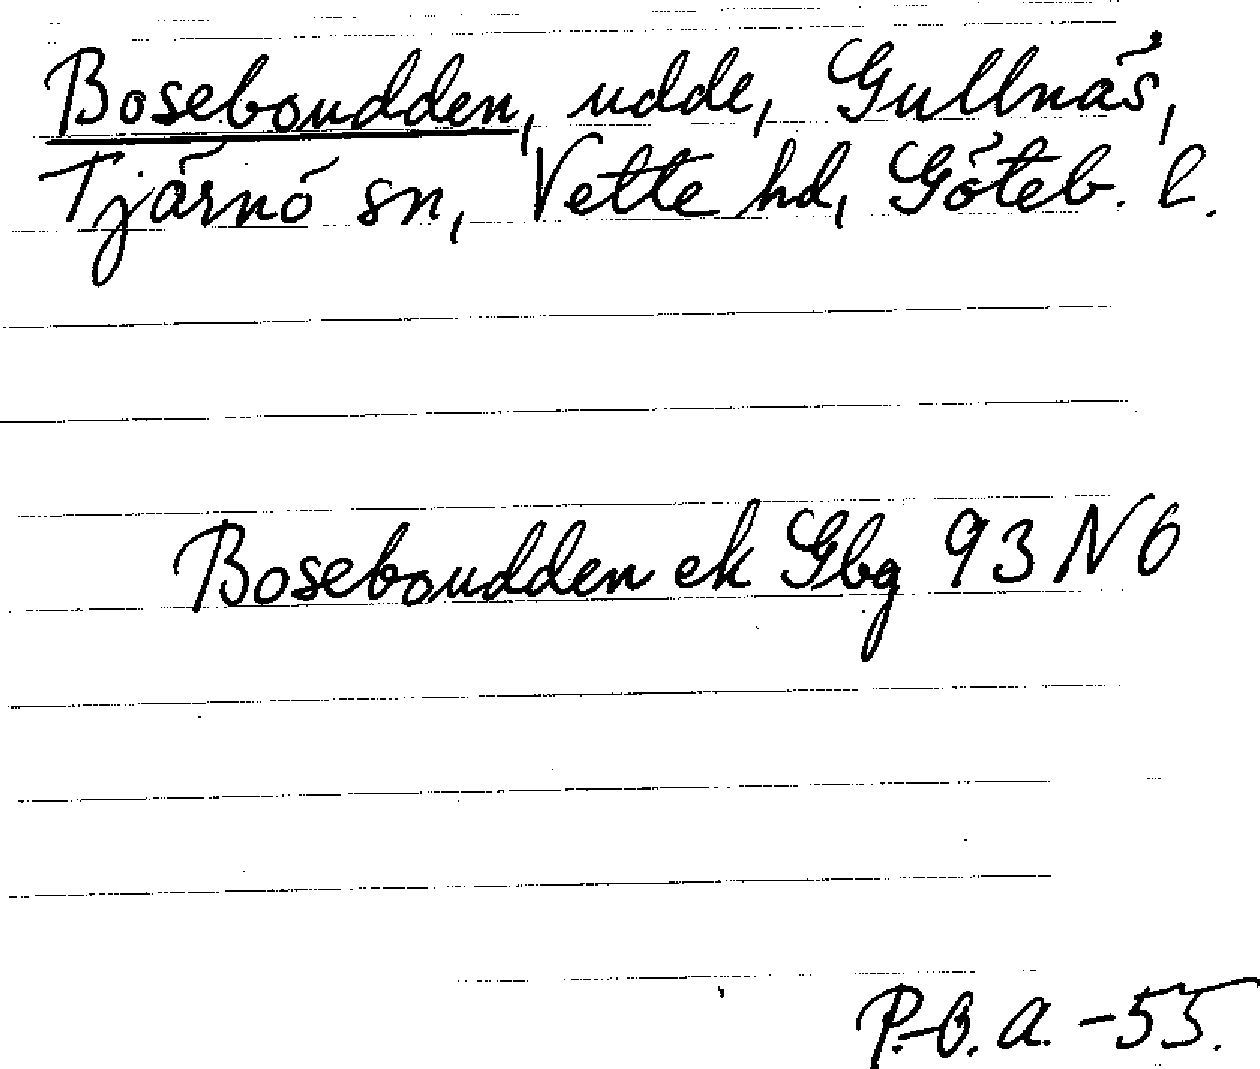 Boseboudden, udde, Gullnäs,
Tjärnö sn, Vette hd, Göteb. l.
Boseboudden ek Gbg 93 NO
P.-O. A. -55.